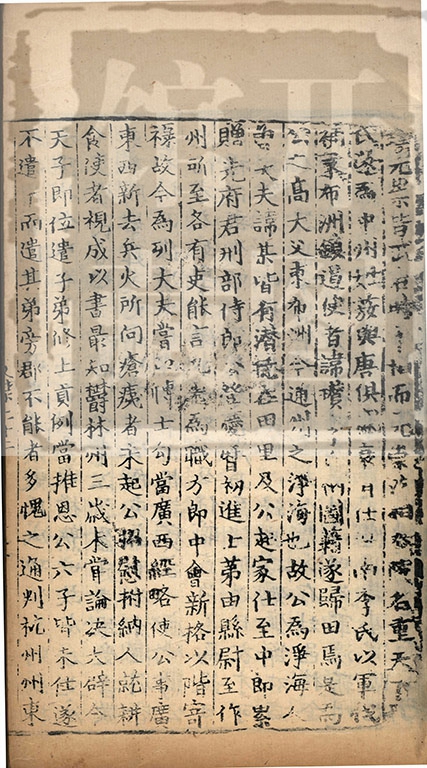 元崇皆而名重天
氏為中州族與唐俱衰仕李氏以軍
布洲鎮遏使者諱州國籍遂歸田焉是為
公之高大父東布洲今通州之淨海也故公為淨海人
大夫諱某皆有潛德在田里及公起家仕至中郎累
贈先府君刑部侍郎公登慶曆初進士第由縣尉至作
州所至各有吏能言為職方郎中會新格以階寄
祿故今為列大夫嘗以博士勾當廣西經略使公事廣
東西新去兵火所向瘡痍者未起公撫慰拊納人就耕
食使者視成以書最知欝林州三歲未嘗論決大辟今
天子即位遣子弟修上貢例當推恩公六子皆未仕遂
不遣子而遣其弟旁郡不能者多愧之通判杭州州東